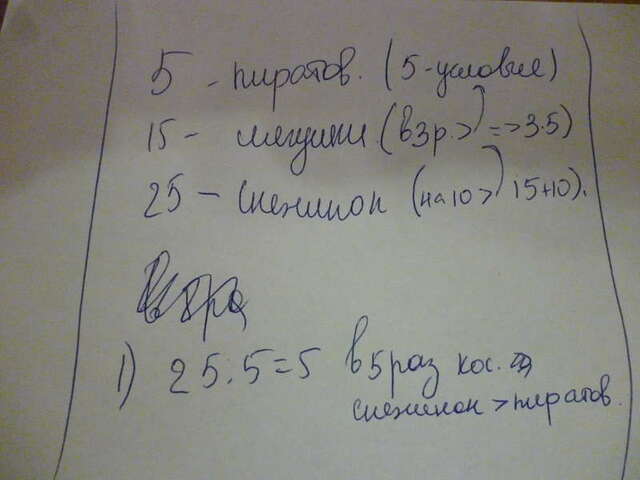 5 - пиратов. (5-условие)
15 - мишки (в 3р.> => 3·5)
25 - снежинок (на 10 > 15+10).
1) 25:5=5 в 5 раз кос.
снежинок > пиратов.